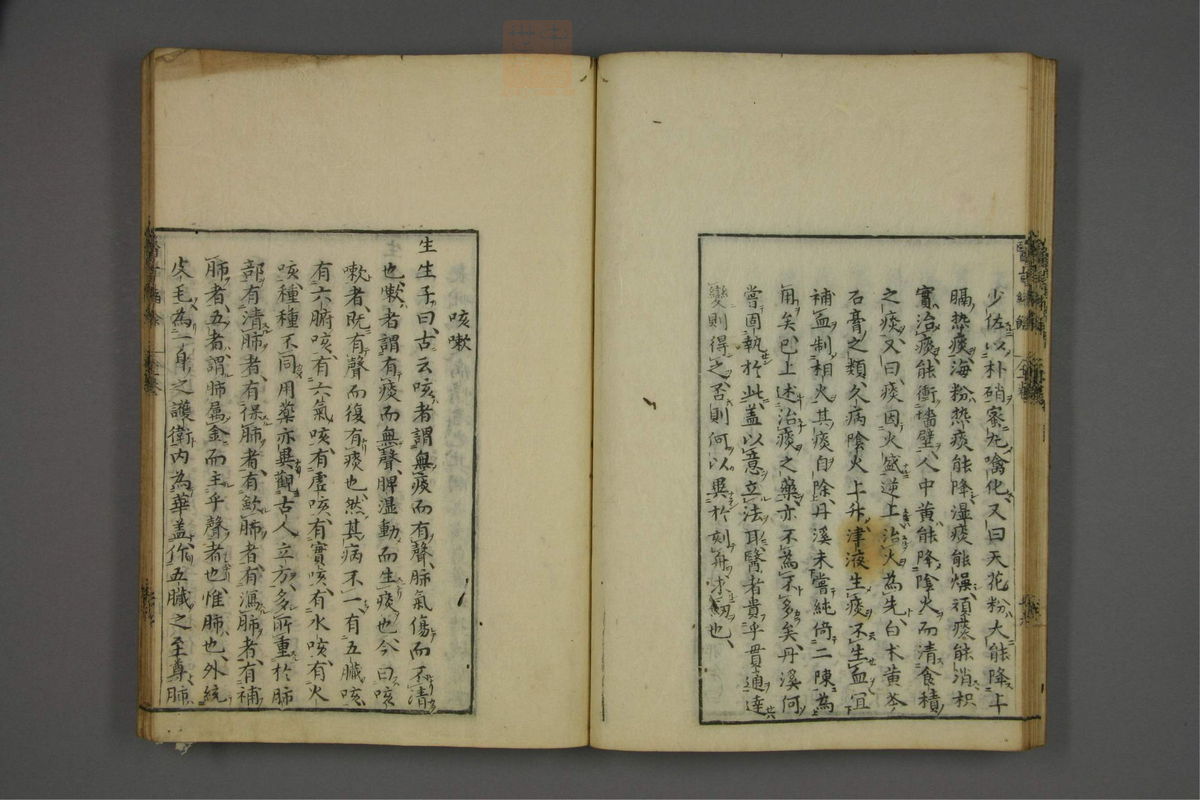 少佐以朴硝蜜丸噙化又曰天花粉大能降上
膈熱痰海粉熱痰能降湿痰能燥頑痰能消枳
實治痰能衝墻壁人中黄能降陰火而清食積
之痰又曰痰因火盛逆上治火為先白朮黄芩
石膏之類久病陰火上升津液生痰不生血宜
補血制相火其痰自除丹溪未嘗純倚二陳為
用矣已上述治痰之藥亦不為不多矣丹溪何
嘗固執於此盖以意立法耳醫者貴乎貫通達
變則得之否則何以異於刻舟求劔也
咳嗽
生生子曰古云咳者謂無痰而有聲肺氣傷而不清
也嗽者謂有痰而無聲脾湿動而生痰也今曰咳
嗽者既有聲而復有痰也然其病不一有五臟咳
有六腑咳有六氣咳有虚咳有實咳有水咳有火
咳種種不同用藥亦異觀古人立方多所重於肺
部有清肺者有保肺者有歛肺者有瀉肺者有補
肺者五者謂肺属金而主乎聲者也惟肺也外統
皮毛為一身之護衛内為華盖作五臟之至尊肺